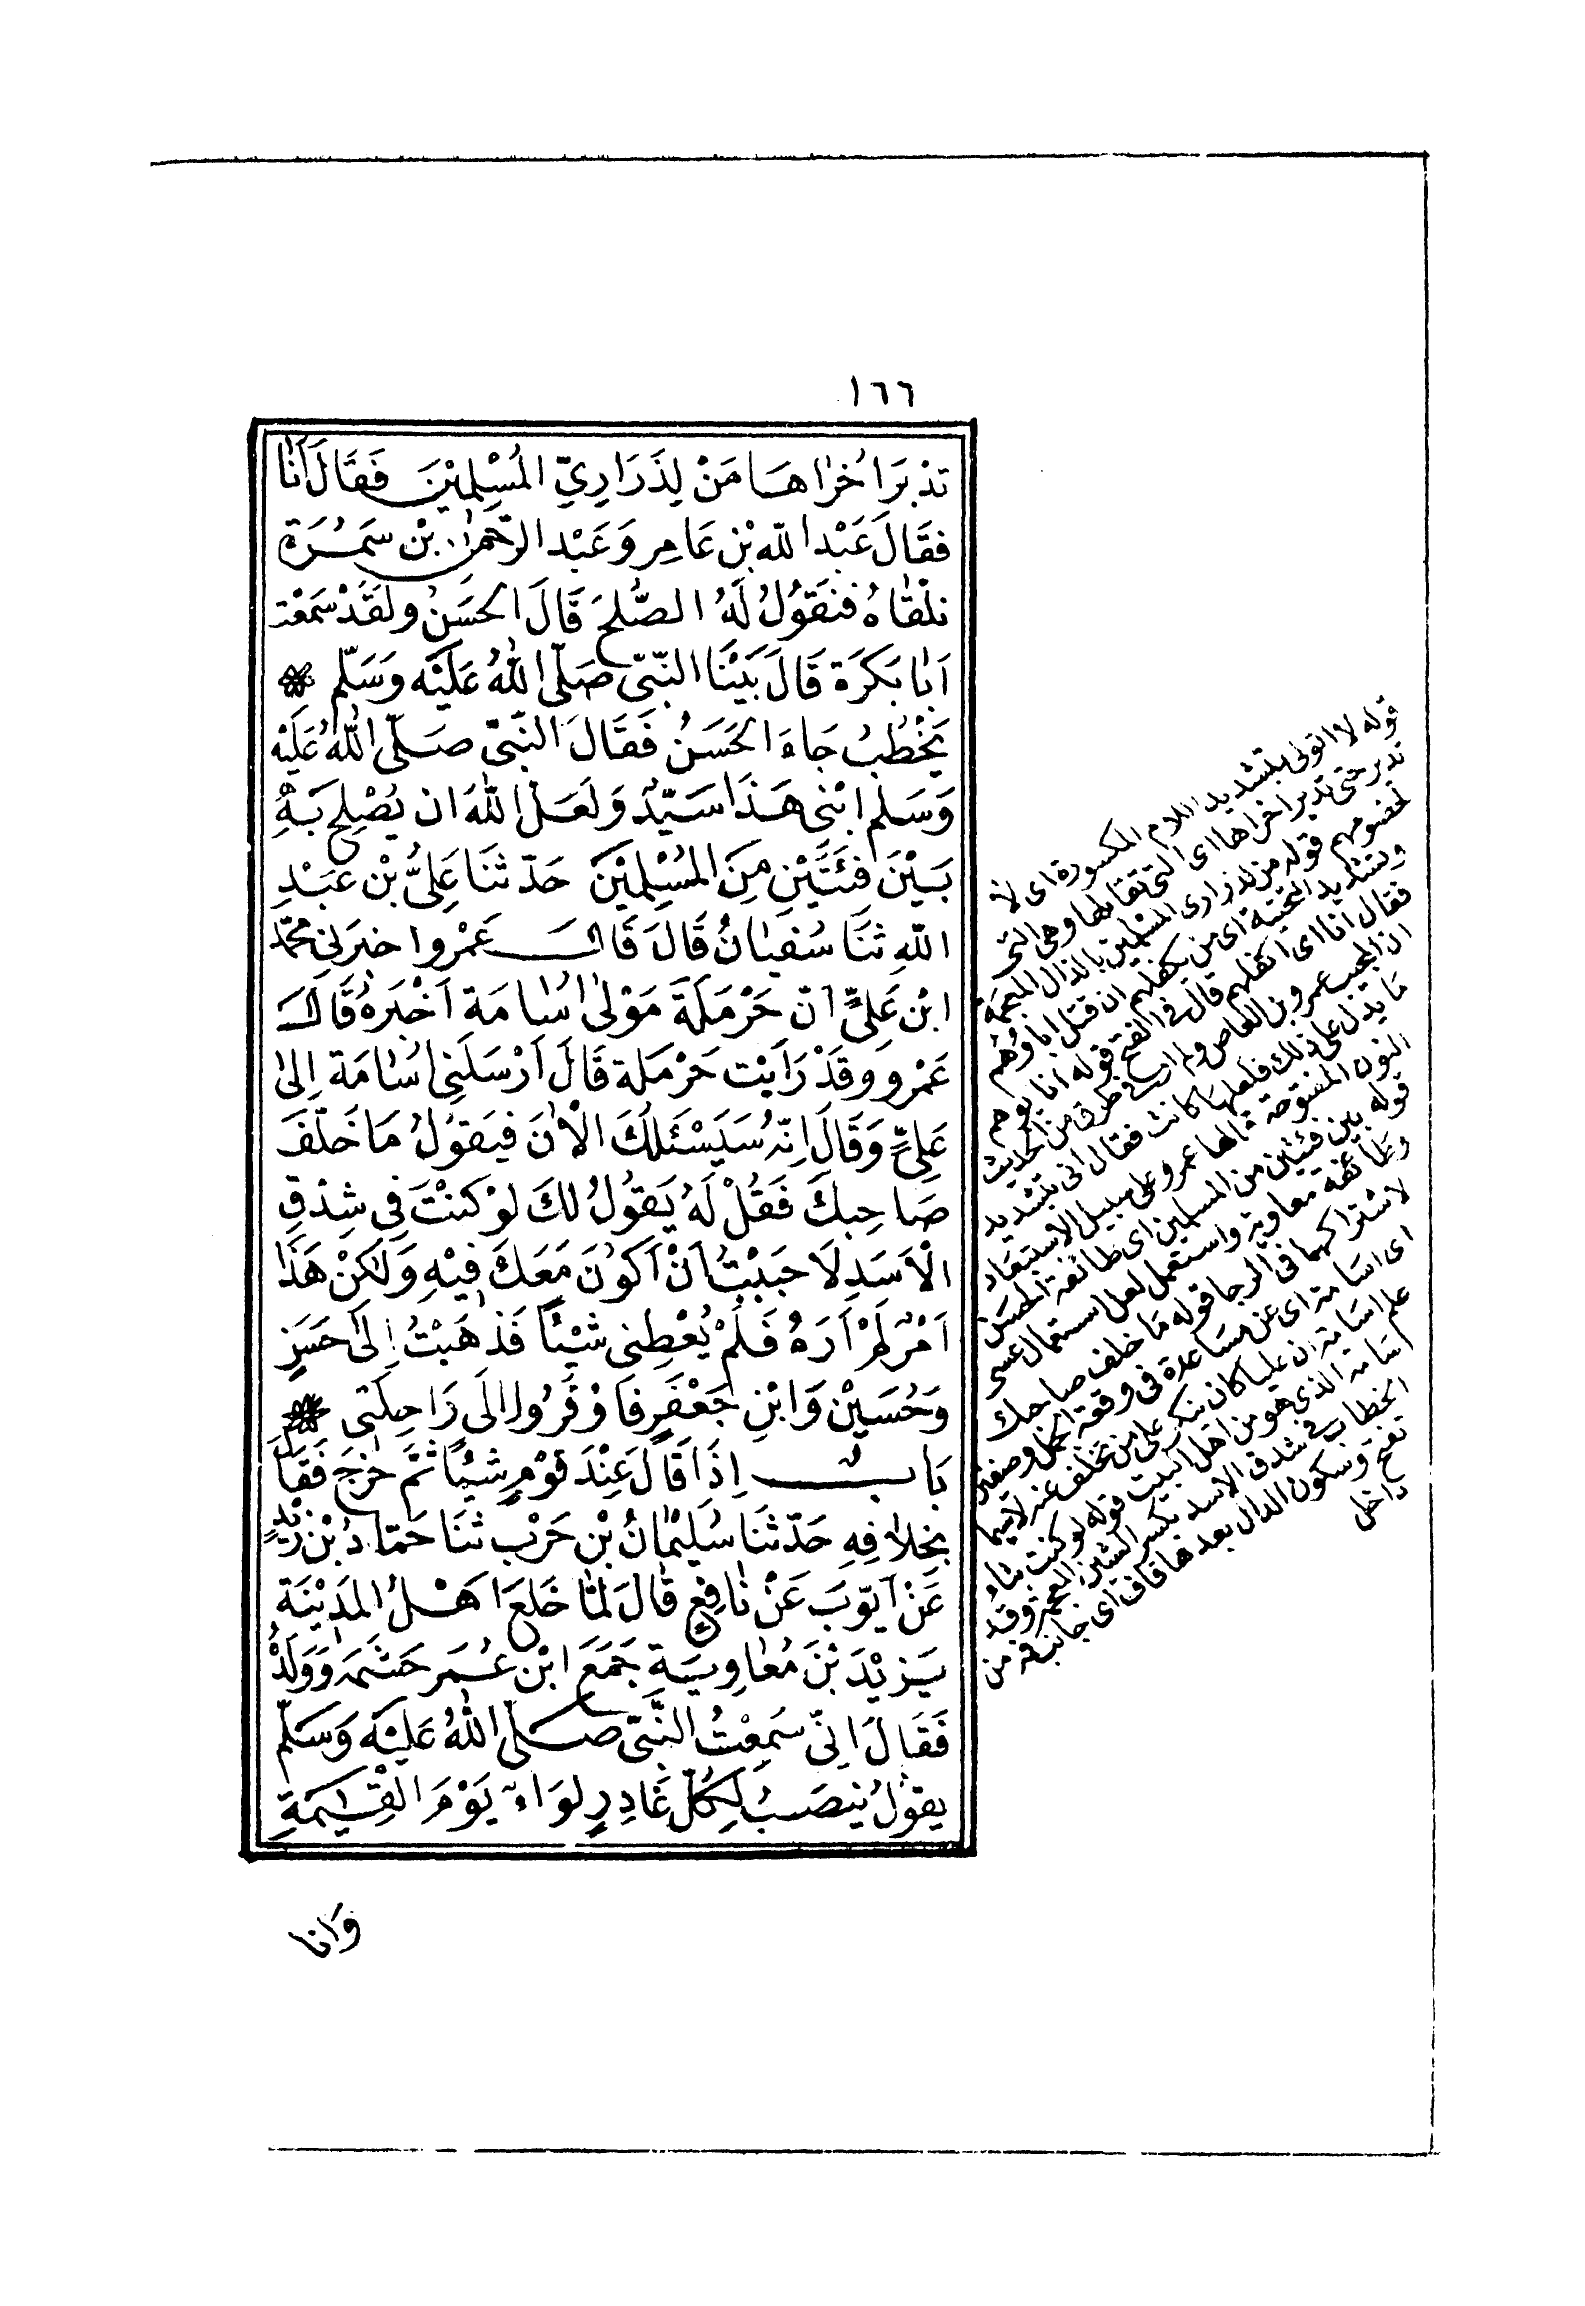 ١٦٦
تدْبرَ اُخرٰاهَا مَنْ لِذَرَارِيِّ المُسْلِمِيْنَ فَقَالَ اَنَا
فَقَالَ عَبْد اللّه بْن عَامِر وَعَبْد الرَّحمٰن بْن سَمُرَة
نلْقَاهُ فنَقُوُلُ لَهُ الصُّلحَ قَالَ الحَسَنُ ولَقَدْ سَمعْت
اَبٰا بَكَرَة قَالَ بَيْنَا النَّبّى صَلّى اللهُ عَلَيْه وَسَلّم
يَخْطُبُ جَاءَ الحَسَنُ فَقَالَ النَّبّى صَلّى اللهُ عَلَيْه
وَسَلم ابْنى هَذَا سَيّدٌ وَلَعَلَّ اللهَ ان يُصْلِحَ بَهِ
بَيْنَ فئَتَيْنِ مِنَ المُسْلِمِيْنَ حَدّثنَا عَلِىُّ بْن عَبْدِ
اللّهِ ثنَا سُفيٰانُ قَالَ قَالَ عَمْرو اخبَرَنى محمّد
ابْن عَلِىٍّ اَنّ حَرْمَلَةَ مَوْلىٰ اُسَامَة اَخْبَرَهُ قَالَ
عَمْرو وَقَدْ رَاَيْت حَرْمَلة قَالَ اَرْسَلَنِى اُسَامَة اِلىٰ
عَلِىٍّ وَقَالَ اِنّهُ سَيَسْئَلُكَ الْاٰنَ فيَقوُلُ مَا خَلّفَ
صَاحِبكَ فَقُلْ لَهُ يَقوُلُ لكَ لوْ كنْتَ فِى شِدْقِ
الْاَسَدِ لَاَحبَبْتُ اَنْ اَكوُنَ مَعَكَ فِيْهِ وَلٰكنْ هَذَا
اَمْرٌ لَمْ اَرَهُ فَلَمْ يُعْطِنى شَيْئًا فَذهَبْتُ اِلىٰ حَسَنٍ
وَحُسَيْن وَابْنِ جَعْفَرٍ فَاوْقَرُوا لِى رَاحِلَتى
بَاب اِذَا قَالَ عِنْدَ قوْمٍ شيْئًا ثمّ خرَجَ فَقَالَ
بخِلَافِهِ حَدّثنَا سُليْمٰانُ بْن حَرْب ثنَا حَمّادُ بْن زيْدٍ
عَنْ اَيّوُبَ عَنْ نٰافِعٍ قَالَ لمّا خَلعَ اَهْلُ المَدِيْنَة
يَزيْدَ بْنَ مُعٰاوِيَة جَمَعَ ابْن عُمَر حَشَمَه وَوَلَدَهُ
فَقَالَ اِنّى سَمِعْتُ النَّبّى صَلّى اللهُ عَلَيْه وَسَلّم
يقوُلُ يُنصَبُ لِكُلّ غَادِرٍ لوَاء يَوْمَ القِيٰمَةِ
وَانا
قوله لا اتولى بتشديد اللام المكسورة اى لا
تدبر حتى تدبر اخراها اى التى تقابلها وهى التى
لخصومهم قوله من لذرارى المسلمين بالذال المعجمة
وتشديد التحتية اى من يكفلهم ان قتل اباؤهم
فقال انا اى اكفلهم قال فى الفتح قوله انا يوهم
ان المجيب عمرو بن العاص ولم ار فى طرق من الحديث
مَا يدل على ذلك فلعلها كانت فقال انى بتشديد
النون المفتوحة قالها عمرو على سبيل الاستبعاد
قوله بين فئتين من المسلمين اى طائفة الحسن
وطائفة معاوية واستعمل لعل استعمال عسى
لاشتراكهما فى الرجا قوله مَا خلف صاحبك
اى اسامة اى عن مساعدة فى وقعة الجمل وصفين
علم اسامة ان عليا كان ينكر على من تخلف عنه لاسيما
اسامة الذى هو من اهل البيت قوله لو كنت بتاء
الخطاب فى شدق الاسد بكسر الشين المعجمة وقد
تفتح وسكون الدال بعدها قاف اى جانب فمه من
داخل